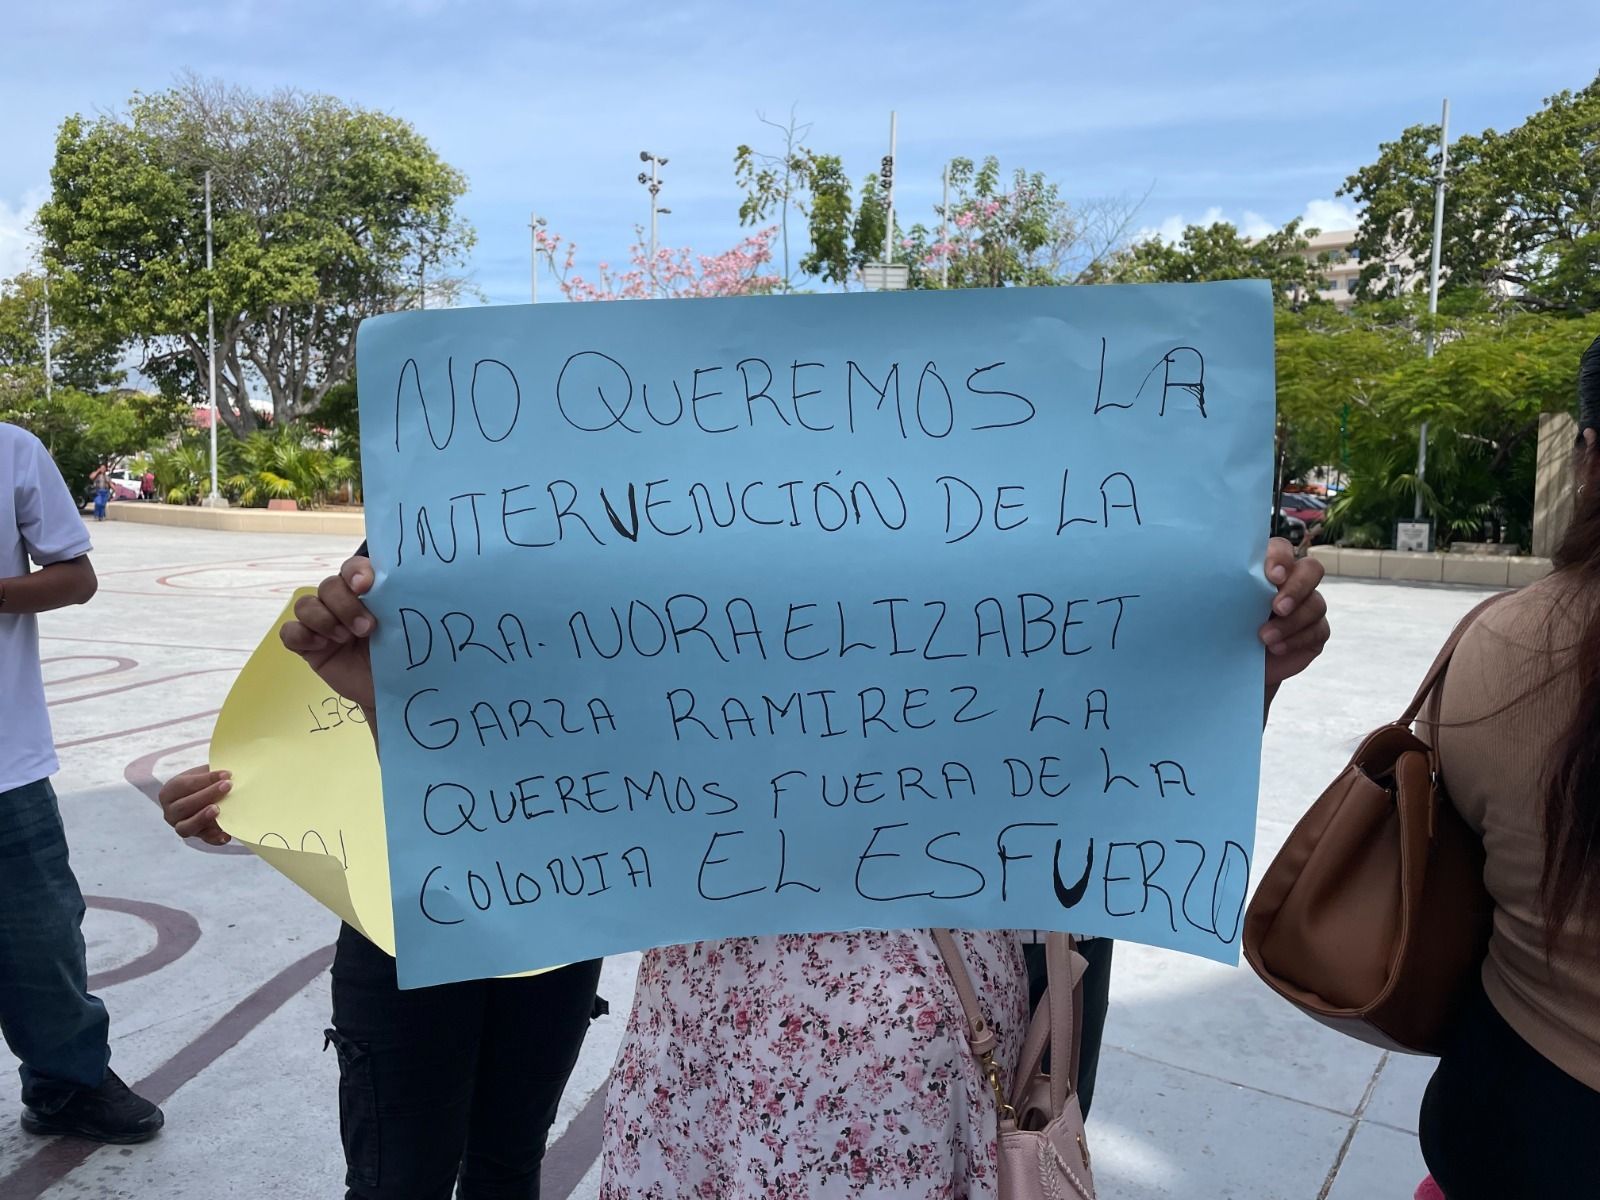 NO QUEREMOS LA
INTERVENCIÓN DE LA
DRA. NORA ELIZABET
GARZA RAMIREZ LA
QUEREMOS FUERA DE LA
COLONIA EL ESFUERZO
BET